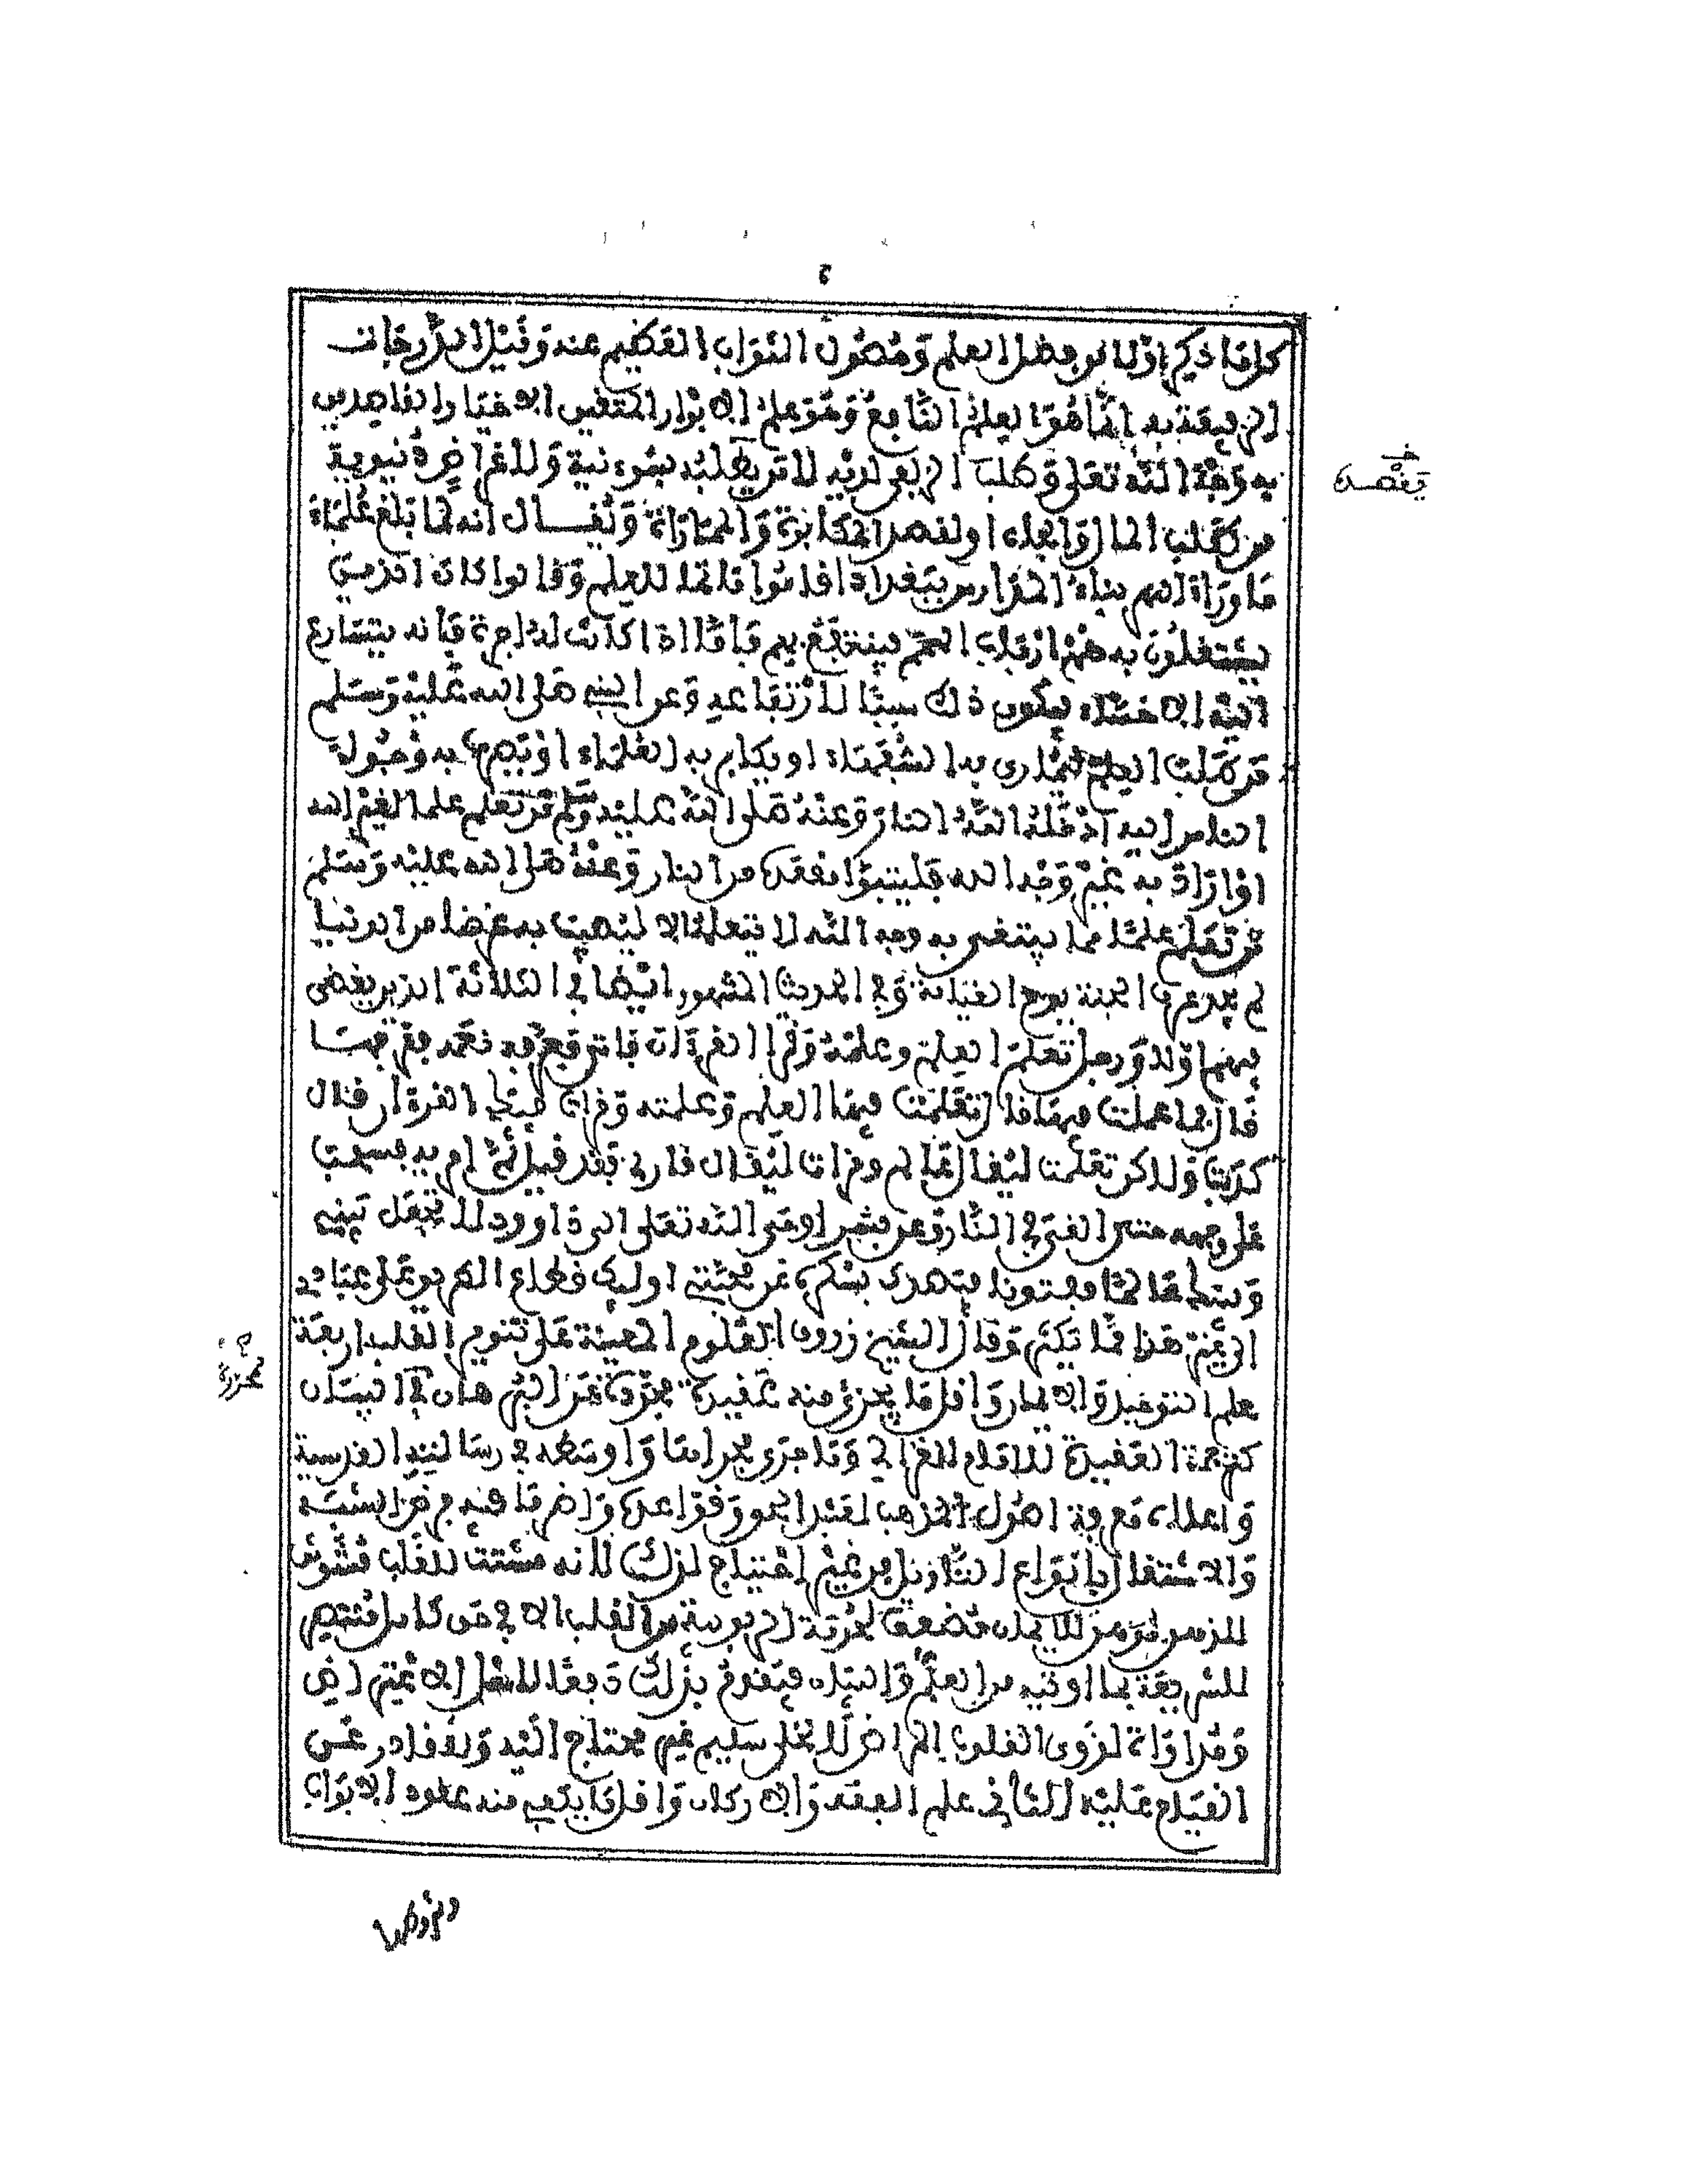 كل ما ذكر اولا من فضل العلم وحصول الثواب العظيم عنه ونيل الدرجات
الرفيعة به انما هو العلم النافع وهو علم الابرار المتقين الاخيار القاصدين
به وجه الله تعلى وطلب الزلفى لديه لا من يطلبه بسوء نية ولاغراض دنيوية
من طلب المال والجاه او لقصد المكابرة والمماراة ويقال انه لما بلغ علماء
ما وراء النهر بناء المدارس ببغداد اقاموا ماتما للعلم وقالوا كان الذين
يشتغلون به هم ارباب الهمم فينتفع بهم فاما اذا كانت له اجرة فانه يتسارع
اليه الاخساء فيكون ذلك سببا لارتفاعه وعن النبي صلى الله عليه وسلم
من طلب العلم ليماري به السفهاء او يكابر به العلماء او يصرف به وجوه
الناس اليه ادخله الله النار وعنه صلى الله عليه وسلم من تعلم علما لغير الله
او اراد به غير وجه الله فليتبوا مقعده من النار وعنه صلى الله عليه وسلم
من تعلم علما مما يبتغى به وجه الله لا يتعلمه الا ليصيب به عرضا من الدنيا
لم يجد عرف الجنة يوم القيامة وفي الحديث المشهور ايضا في الثلاثة الذين يقضى
فيهم اولا ورجل تعلم العلم وعلمه وقرا القرءان فاتى به فعرفه نعمه فعرفها
قال فما عملت فيها قال تعلمت فيها العلم وعلمته وقرات فيك القرءان قال
كذبت ولاكن تعلمت ليقال عالم وقرات ليقال قارئ فقد قيل ثم امر به فسحب
على وجهه حتى القي في النار وعن بشر اوحى الله تعلى الى داوود لا تجعل بيني
وبينك عالما مفتونا فيصدك بسكره عن محبتي اوليك قطاع الطريق على عبادي
الى غير هذا مما يكثر وقال الشيخ زروق العلوم المعينة على تنوير القلب اربعة
علم التوحيد والايمان واقل ما يجزئ منه عقيدة مجردة عن البرهان في البيان
كترجمة العقيدة للامام الغزالي وما جرى مجراها واوسطه في رسالته القدسية
واعلاه معرفة اصول المذهب لقيد النحو وقواعده واضر ما فيه جر خزا لشبه
والاشتغال بانواع التاويل من غير احتياج لذلك لانه مشتت للقلب مشوش
للذهن موهن للايمان مضعف لحرمة الربوبية من القلب الا في حق كامل منتصر
للشريعة بما اوتيه من العلم والبيان فيقوم بذلك دفعا لاهل الاغترار
ومداواة لذوى القلوب المراض لا لخلي سليم غير محتاج اليه ولا قادر على
القيام عليه الثاني علم الفقه والاركان واقل ما يكفي منه علوم الابواب
يقصده
مجردة